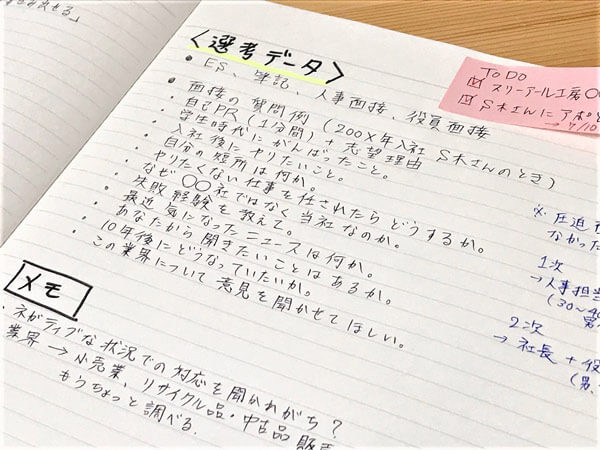 <選考データ>
• ES、筆記、人事面接、役員面接
• 面接の質問例（200X年入社 S木さんのとき）
・自己PR（1分間）+ 志望理由
・学生時代にがんばったこと。
・入社後にやりたいこと。
・自分の短所は何か。
・やりたくない仕事を任されたらどうするか。
・なぜ〇〇社ではなく当社なのか。
・失敗経験を教えて。
・最近気になったニュースは何か。
・あなたから聞きたいことはあるか。
・10年後にどうなっていたいか。
・この業界について意見を聞かせてほしい。
メモ
・ネガティブな状況での対応を聞かれがち？
業界→小売業、リサイクル品・中古品販売
もうちょっと調べる。
TO DO
☑ スリーアール工房
☑ S木さんにアポ
→7/10
※圧迫
なかった
1次
→人事担当
(30~40
2次
→社長+役
(男、